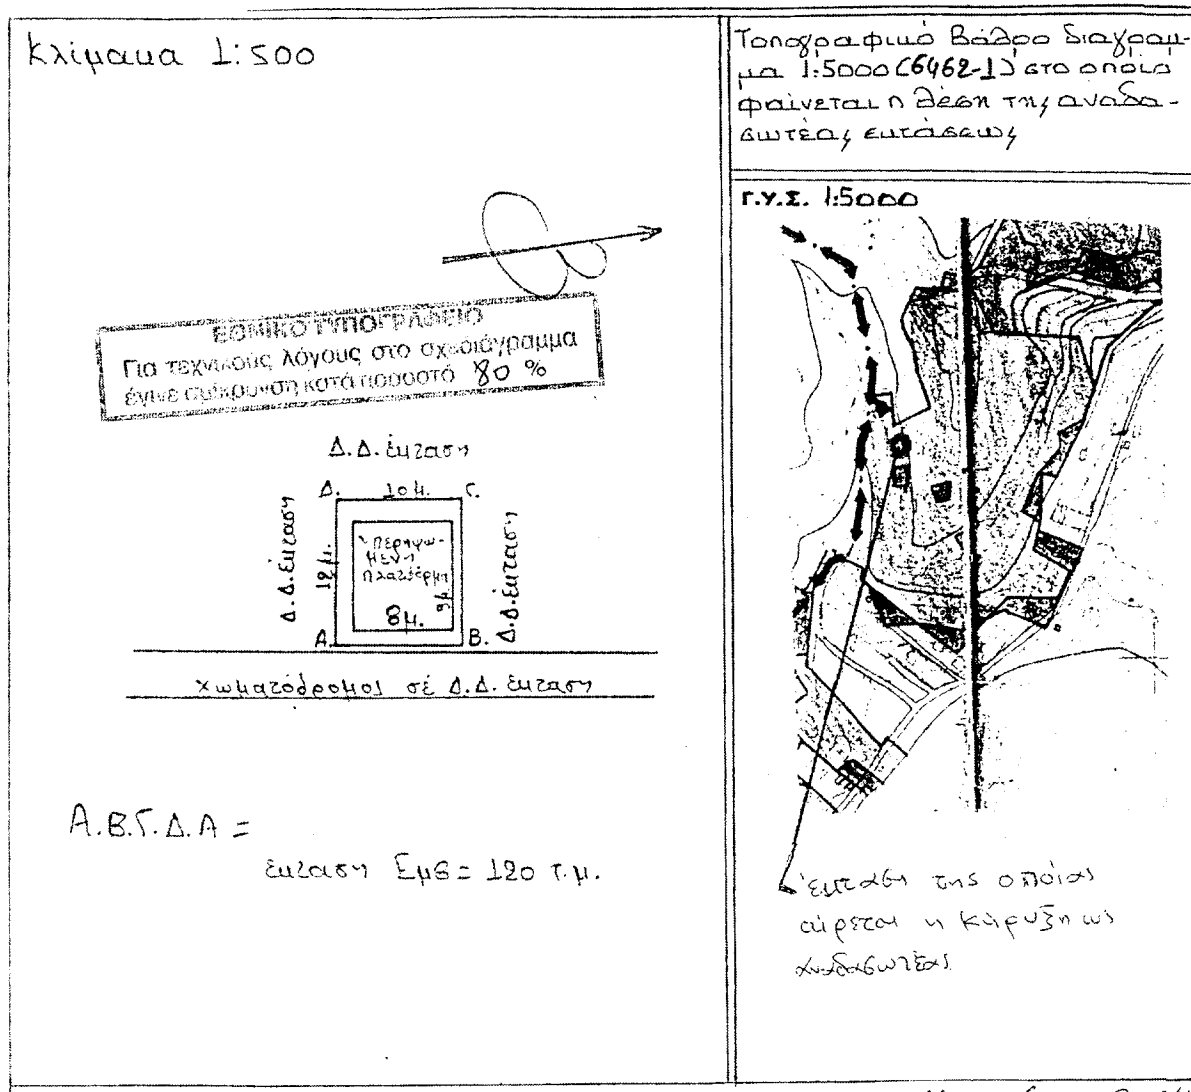 Κλίμακα 1:500
ΕΘΝΙΚΟ ΤΥΠΟΓΡΑΦΕΙΟ
Για τεχνικούς λόγους στο σχεδιάγραμμα
έγινε σμίκρυνση κατά ποσοστό 80 %
Δ.Δ. έκταση
Δ. 10 μ. Γ.
Δ.Δ. έκταση
12 μ.
Περηφω-
μένη
πλατφόρμα
9 μ.
8 μ.
Δ.Δ. έκταση
Α. Β.
χωματόδρομος σέ Δ.Δ. έκταση
Α.Β.Γ.Δ.Α =
έκταση Εμβ = 120 τ.μ.
Τοπογραφικό Βάθρο διαγραμ-
μα 1:5000 (6462-1) στο οποίο
φαίνεται η θέση της αναδα-
σωτέας εκτάσεως
Γ.Υ.Σ. 1:5000
έκταση της οποίας
αίρεται η κήρυξη ως
αναδασωτέας